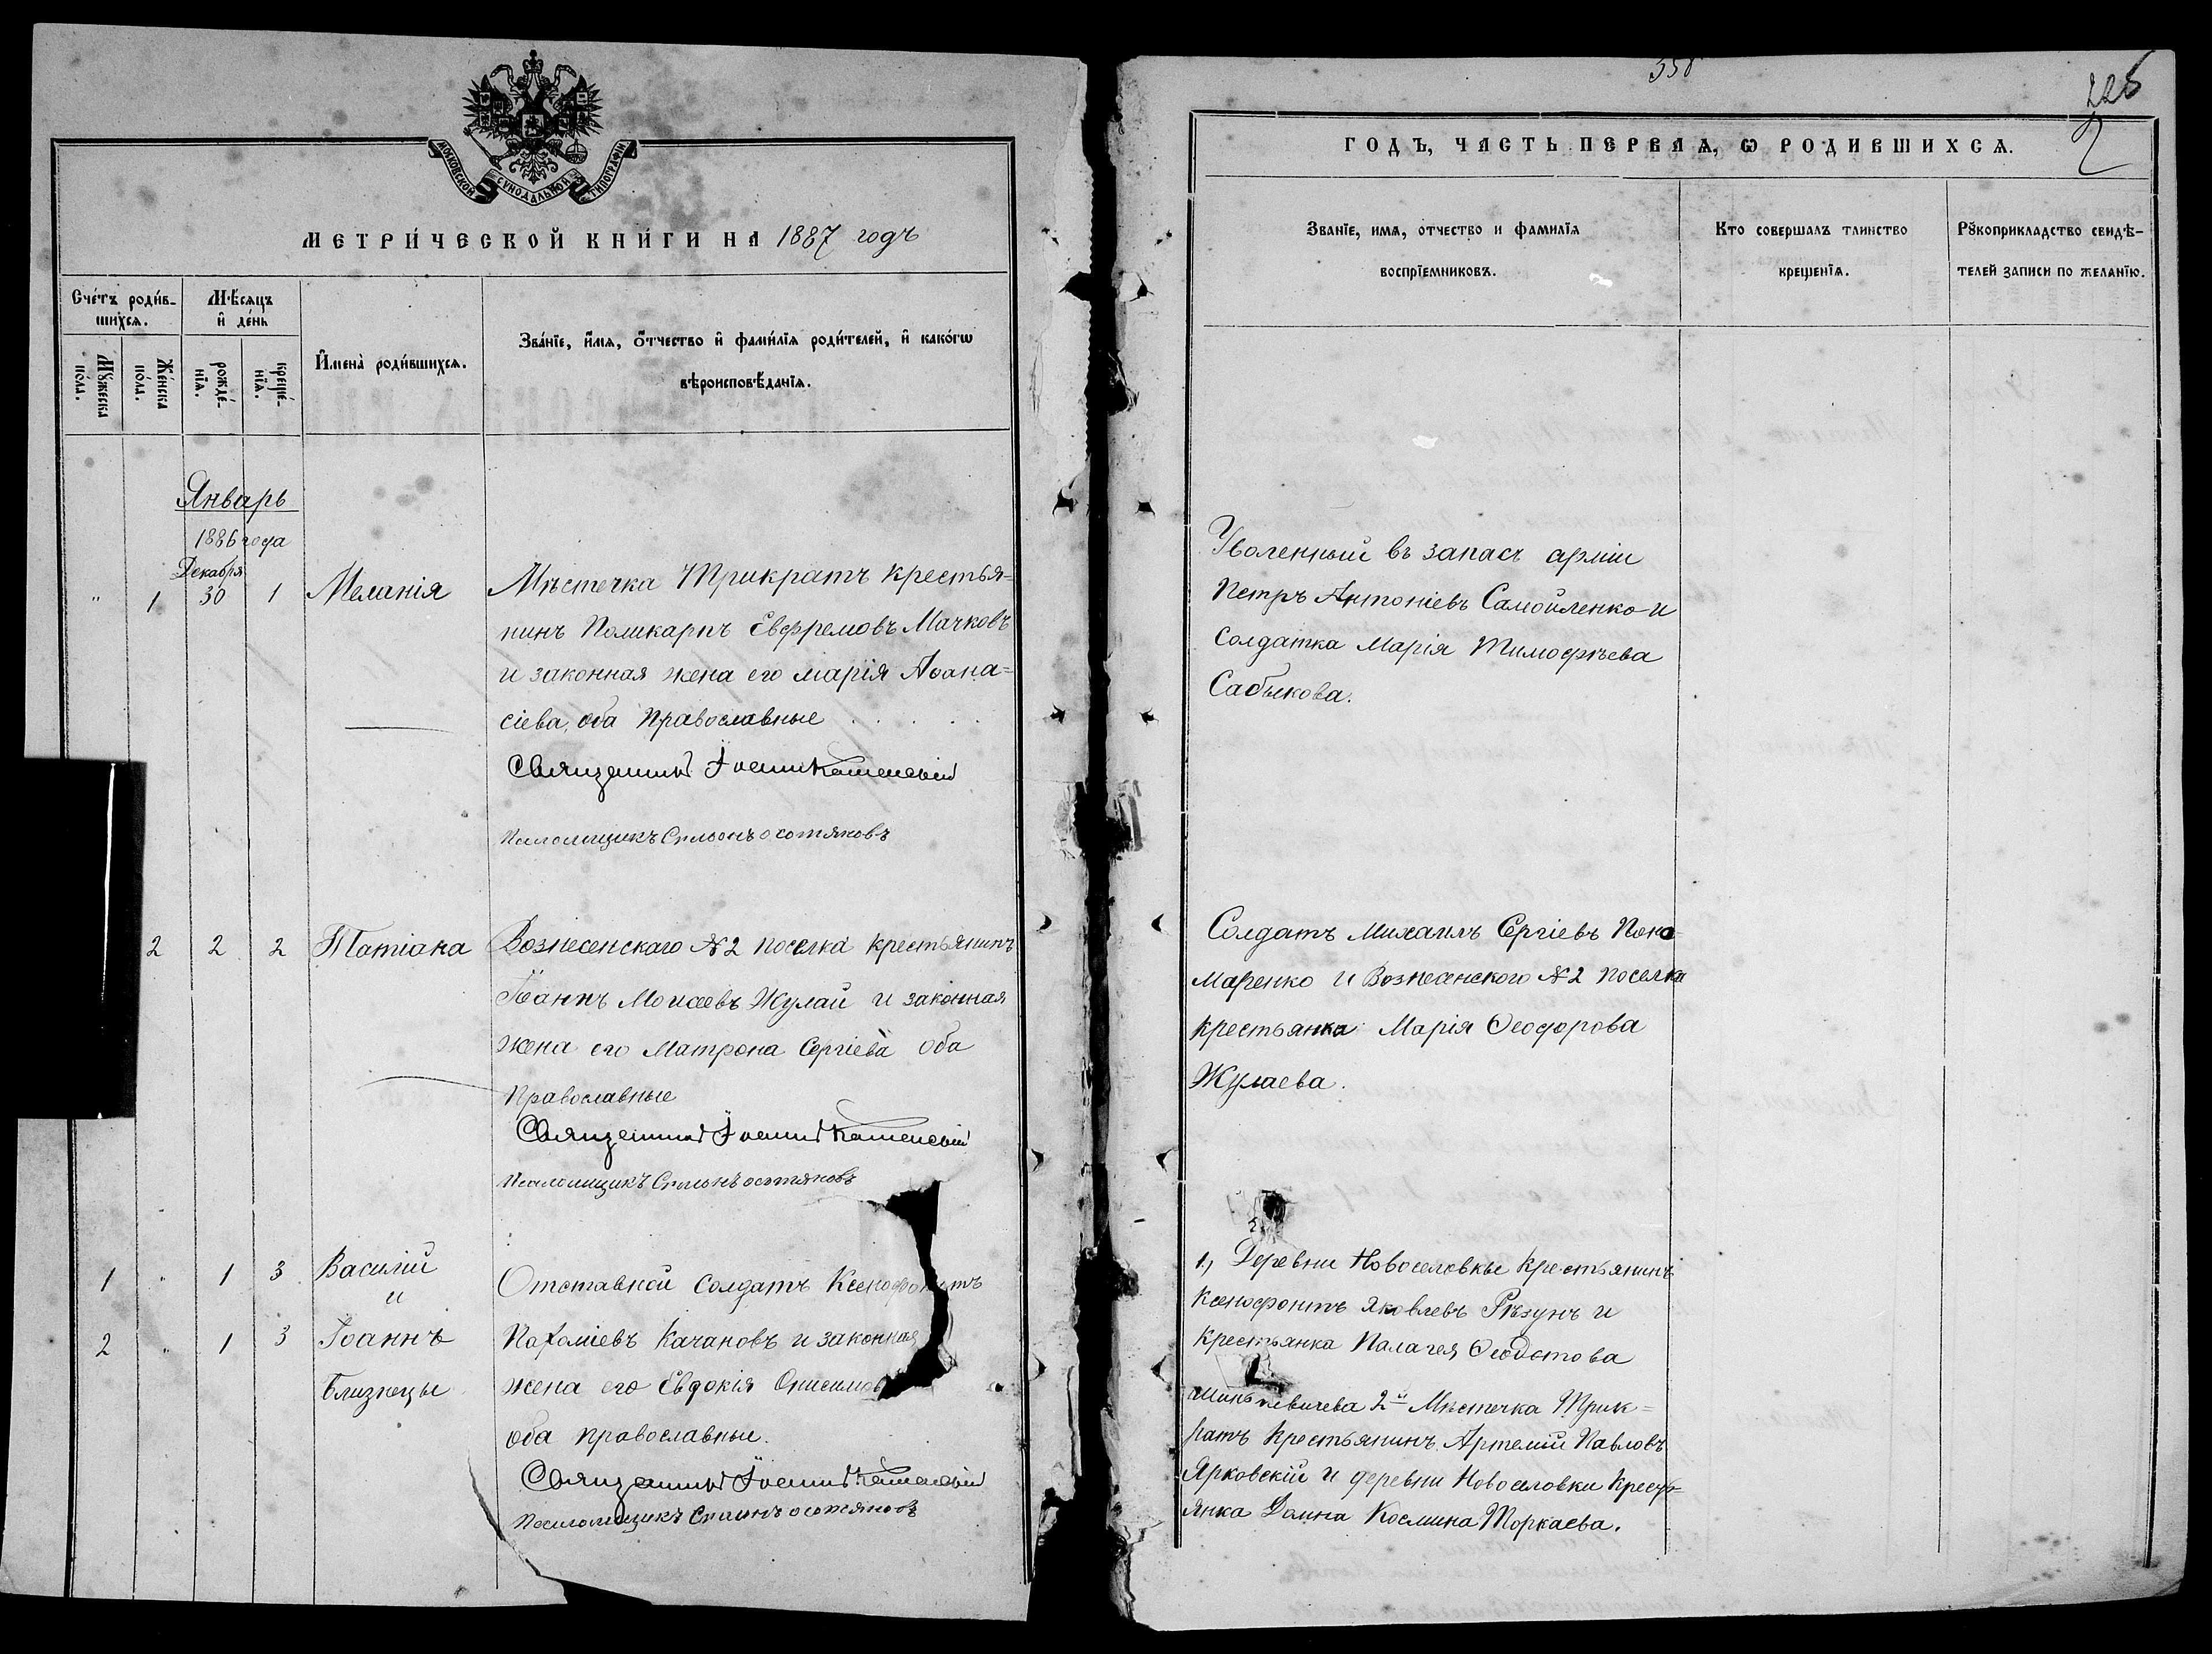 МОСКОВСКОЙ СѴНОДАЛЬНОЙ ТИПОГРАФІИ
МЕТРИ́ЧЕСКОЙ КНИ́ГИ НА 1887 годъ
Сче́тъ роди́в-
шихсѧ.
Мѣ́сѧцъ
и҆ де́нь
Мꙋ́жеска
по́ла.
Же́нска
по́ла.
рожде́-
нїѧ.
креще́-
нїѧ.
И҆мена̀ роди́вшихсѧ.
Зва́нїе, и҆́мѧ, ѻ҆́тчество и҆ фами́лїѧ роди́телей, и҆ како́гѡ
вѣроисповѣ́данїѧ.
Январь
1886 года
Декабря
" 1 30 1 Меланія
Мѣстечка Трикратъ крестья=
нинъ Поликарпъ Евфремовъ Мачковъ
и законная жена его Марія Аѳана=
сіева, оба Православные
Священникъ Іоаннъ
Псаломщикъ
2 2 2 Татіана
Вознесенскаго №2 поселка крестьянинъ
Іоаннъ Моисеевъ Жулай и законная
жена его Матрона Сергіева оба
Православные
Священникъ Іоаннъ
Псаломщикъ
1 " 1 3 Василій
и
2 " 1 3 Іоаннъ
Близнецы
Отставной солдатъ Ксенофонтъ
Пахоміевъ Качановъ и законная
жена его Евдокія
оба православные.
Священникъ Іоаннъ
Псаломщикъ
358
226
ГОДЪ, ЧАСТЬ ПЕРВАѦ, Ѡ РОДИВШИХСѦ.
Званїе, имѧ, отчество и фамилїѧ
воспрїемниковъ.
Кто совершалъ таинство
крещенїѧ.
Рꙋкоприкладство свидѣ-
телей записи по желанїю.
Уволенный въ запасъ арміи
Петръ Антоніевъ Самойленко и
солдатка Марія Тимофѣева
Сабыкова.
Солдатъ Михаилъ Сергіевъ Поно=
маренко и Вознесенского №2 поселка
крестьянка Марія Ѳеодорова
Жулаева.
1, Деревни Новоселовки крестьянинъ
Ксенофонтъ Яковлевъ Рѣзунъ и
крестьянка Палагея Ѳеодотова
2й Мѣстечка Трик=
ратъ крестьянинъ Артемій Павловъ
Ярковскій и деревни Новоселовки кресть=
янка Домна Космина Торкаева.